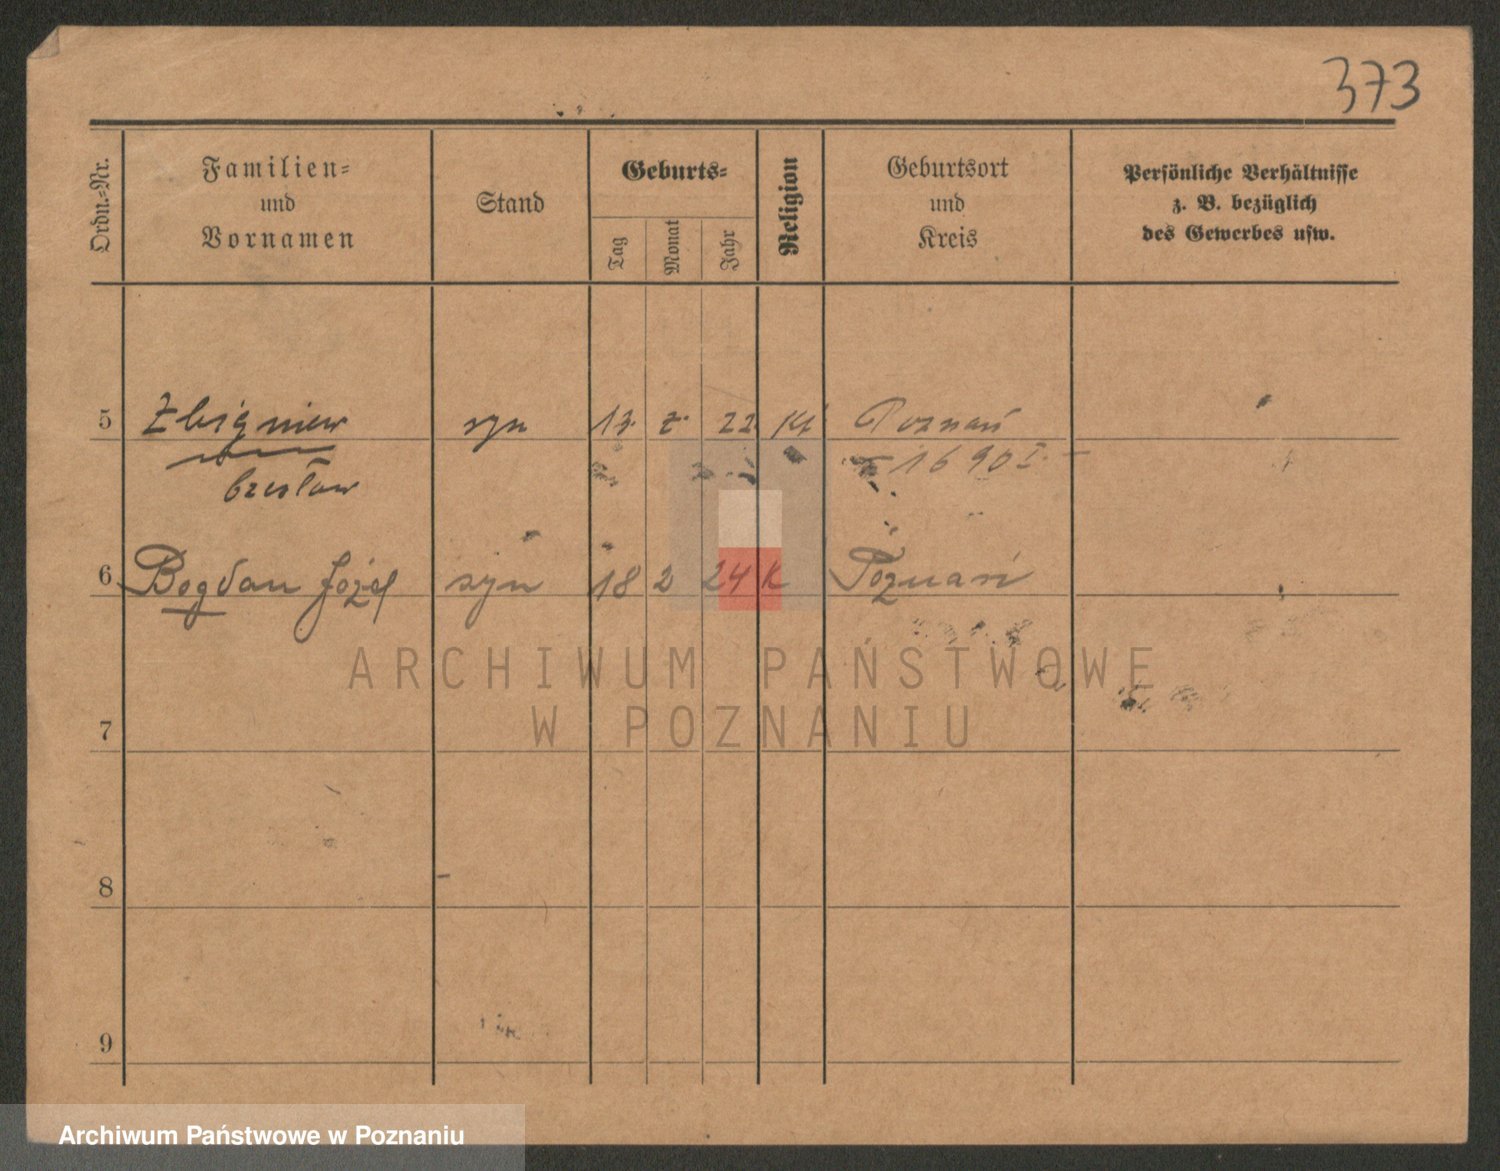 373
Ordn.-Nr.
Familien-
und
Vornamen
Stand
Geburts-
Tag
Monat
Jahr
Religion
Geburtsort
und
Kreis
Persönliche Verhältnisse
z. B. bezüglich
des Gewerbes usw.
5 Zbigniew syn 13. 2. 22 Kt Poznań
1690 I
Czesław
6 Bogdan Józef syn 18 2 24 K Poznań
ARCHIWUM PAŃSTWOWE
W POZNANIU
7
8
9
Archiwum Państwowe w Poznaniu